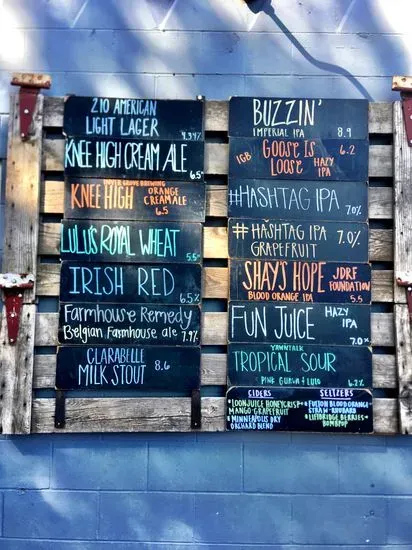 210 AMERICAN
LIGHT LAGER 4.34%
KNEE HIGH CREAM ALE 6.5%
INVER GROVE BREWING
KNEE HIGH ORANGE CREAM ALE
6.5
LULU'S ROYAL WHEAT 5.5%
IRISH RED 6.5%
FARMHOUSE REMEDY
BELGIAN FARMHOUSE ALE 7.9%
CLARABELLE
MILK STOUT 8.6
BUZZIN'
IMPERIAL IPA 8.9
IGB GOOSE IS LOOSE HAZY IPA 6.2
#HASHTAG IPA 7.0%
#HASHTAG IPA 7.0%
GRAPEFRUIT
SHAY'S HOPE JDRF FOUNDATION
BLOOD ORANGE IPA 5.5
FUN JUICE HAZY IPA
7.0%
YAWNTALK
TROPICAL SOUR
PINK GUAVA + LULO 6.2%
CIDERS
*LOONJUICE HONEYCRISP
MANGO GRAPEFRUIT
*MINNEAPOLIS DRY
ORCHARD BLEND
SELTZERS
*FULTON BLOOD ORANGE
STRAW-RHUBARB
*LIFTBRIDGE BERRIES
BOMBPOP